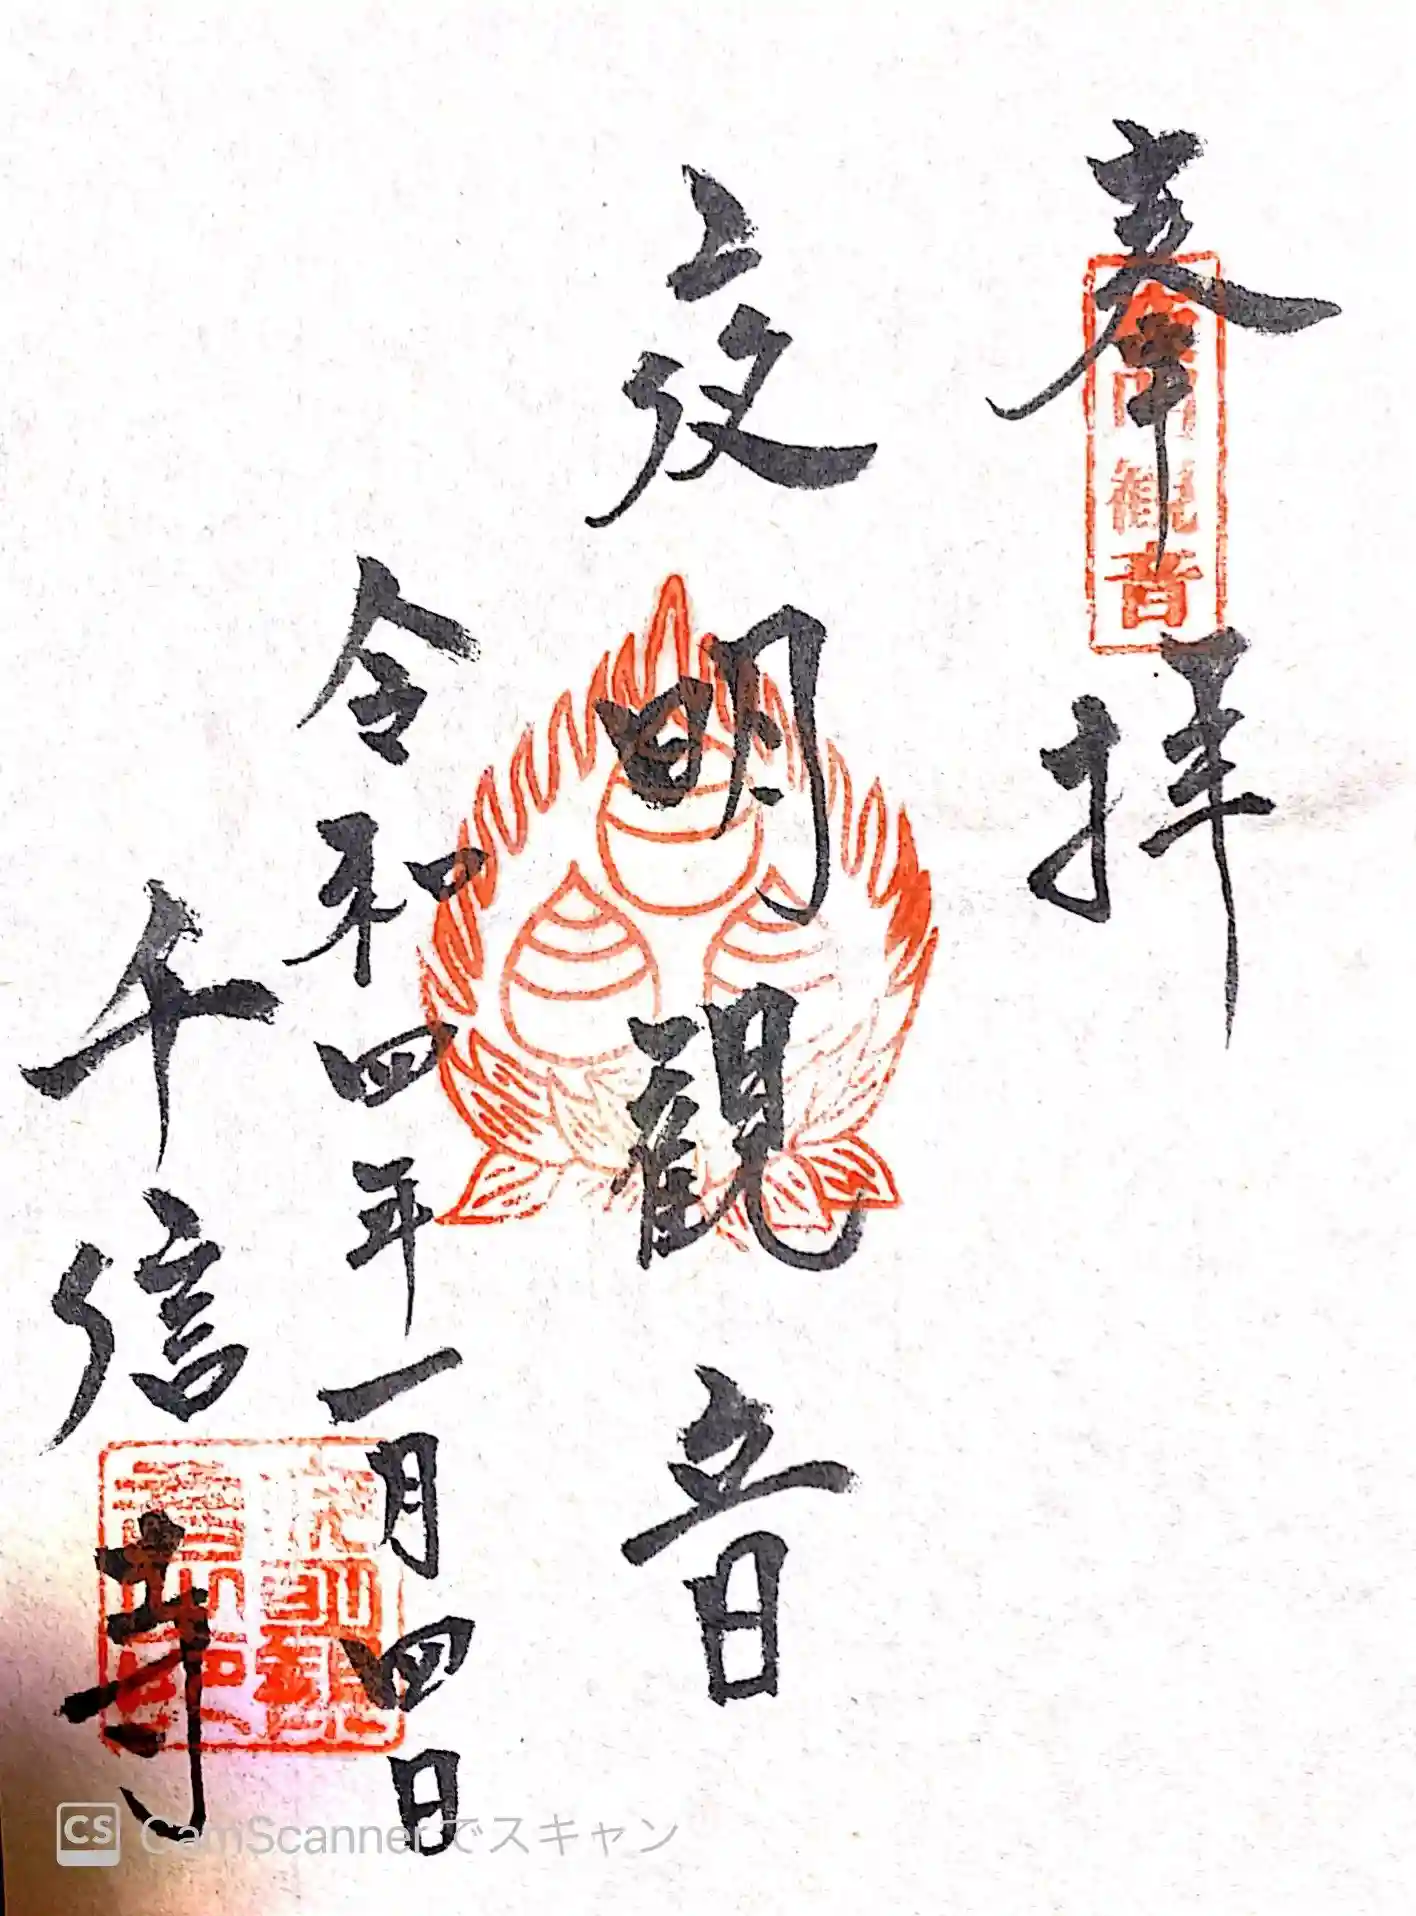 奉拝
夜明観音
令和四年一月四日
千信寺
観音
CS CamScannerでスキャン